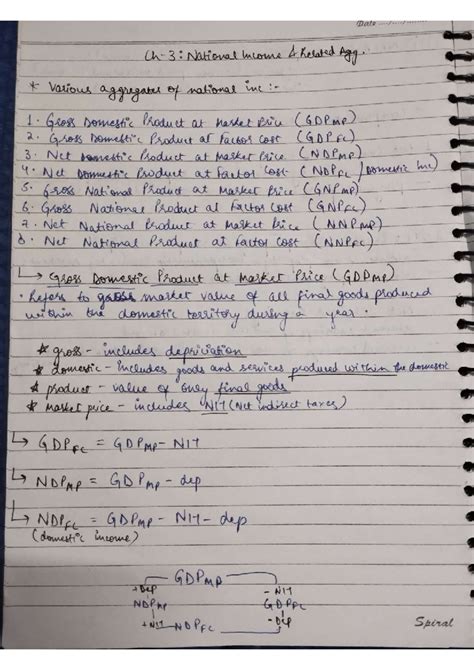 Date ..../..../....
Ch-3: National Income & Related Agg.
* Various aggregates of national inc :-
1. Gross Domestic Product at Market Price (GDPMP)
2. Gross Domestic Product at Factor Cost (GDPFC)
3. Net Domestic Product at Market Price (NDPMP)
4. Net Domestic Product at Factor Cost (NDPFC / Domestic inc)
5. Gross National Product at Market Price (GNPMP)
6. Gross National Product at Factor Cost (GNPFC)
7. Net National Product at Market Price (NNPMP)
8. Net National Product at Factor Cost (NNPFC)
↳ Gross Domestic Product at Market Price (GDPMP)
• Refers to gross market value of all final goods produced
within the domestic territory during a year.
* gross - includes depriciation
* domestic - includes goods and services produced within the domestic
* product - value of only final goods
* market price - includes NIT (Net indirect taxes)
↳ GDPFC = GDPMP - NIT
↳ NDPMP = GDPMP - dep
↳ NDPFC = GDPMP - NIT - dep
(domestic income)
GDPMP
+Dep - NIT
NDPMP GDPFC
+NIT NDPFC - Dep
Spiral